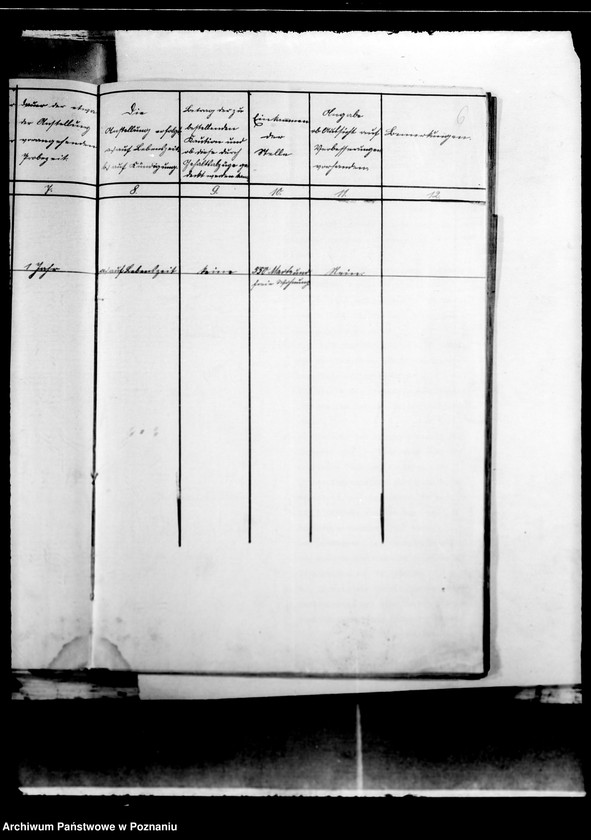 6
Dauer der etwa
der Anstellung
vorangehenden
Probezeit.
Die
Anstellung erfolgt
a) auf Lebenszeit
b) auf Kündigung.
Betrag der zu
bestellenden
Kaution und
ob diese durch
Gehaltsabzüge ge
deckt werden kann
Einkommen
der
Stelle
Angabe
ob Aussicht auf
Verbesserungen
vorhanden
Bemerkungen.
7. 8. 9. 10. 11. 12.
1 Jahr a) auf Lebenszeit keine 550 Mark und Keine
freie Wohnung
Archiwum Państwowe w Poznaniu